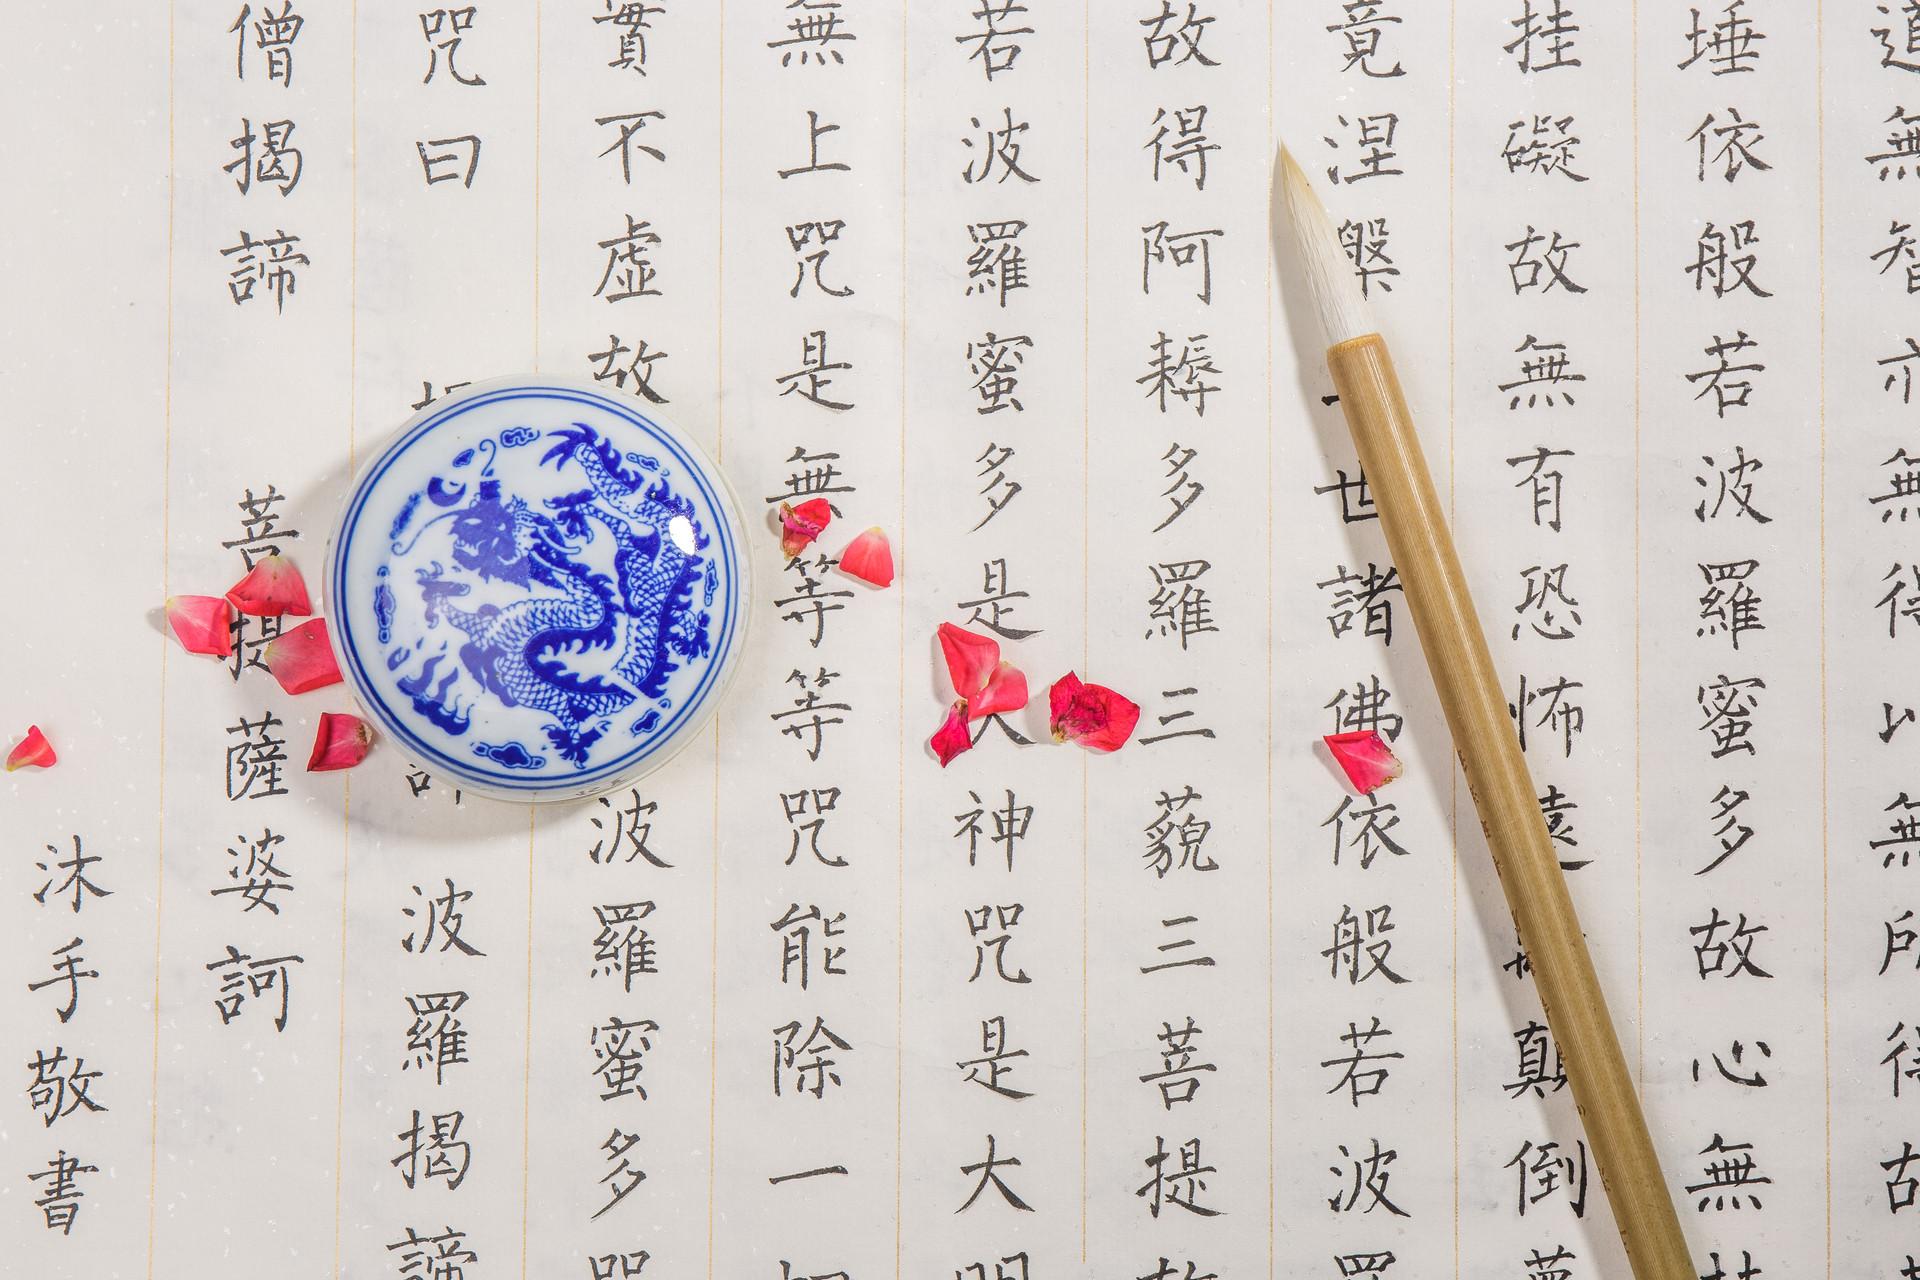 無智亦無得以無所得故
埵依般若波羅蜜多故心無
挂礙故無有恐怖遠顛倒夢
竟涅槃世諸佛依般若波羅
故得阿耨多羅三藐三菩提故
若波羅蜜多是大神咒是大明
無上咒是無等等咒能除一切
實不虛故波羅蜜多咒
咒曰波羅揭諦
僧揭諦菩提薩婆訶
沐手敬書